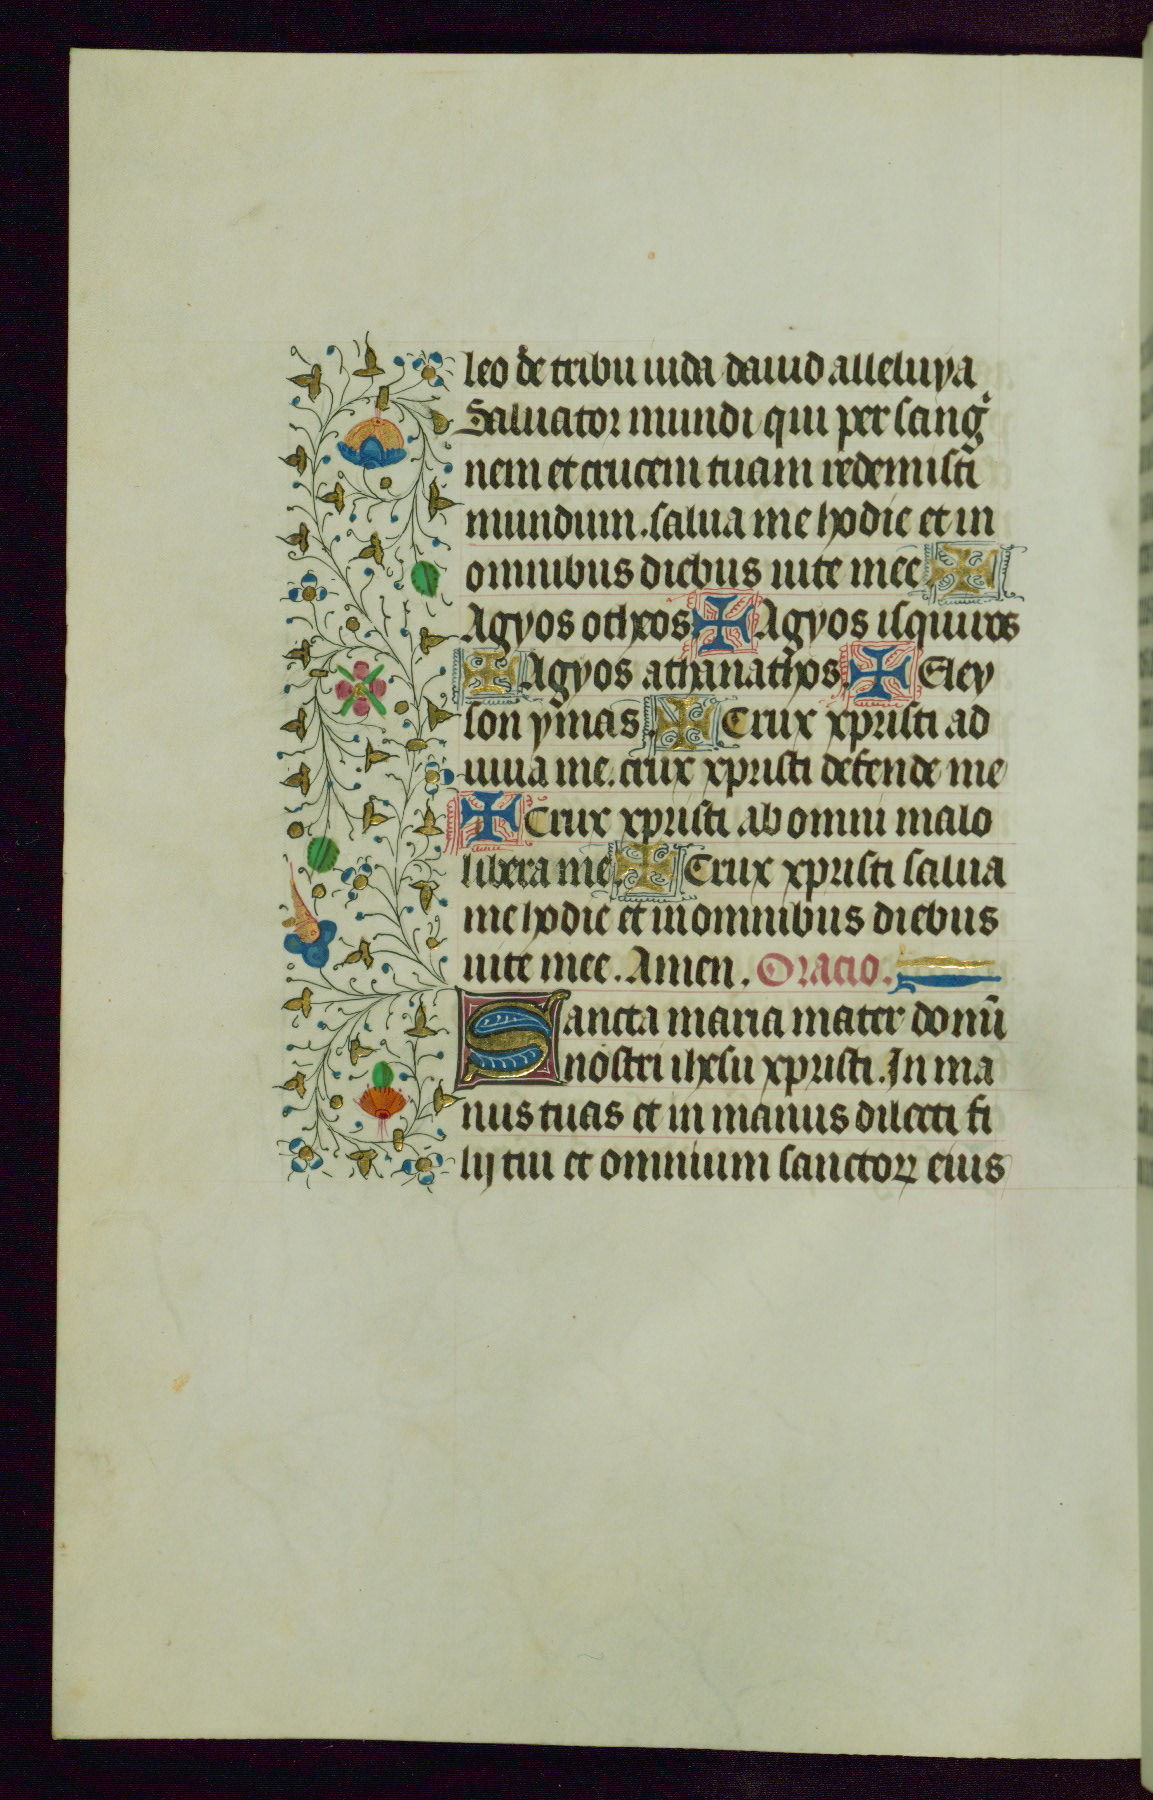 leo de tribu iuda dauid alleluya
Saluator mundi qui per sang̾
nem et crucem tuam redemisti
mundum. salua me hodie et in
omnibus diebus uite mee ✠
Agyos otheos ✠ Agyos isquiros
✠ Agyos athanathos. ✠ Eley
son ymas. ✠ Crux xpristi ad
iuua me. crux xpristi defende me
✠ Crux xpristi ab omni malo
libera me ✠ Crux xpristi salua
me hodie et in omnibus diebus
uite mee. Amen. Oracio.
Sancta maria mater domī
nostri ihesu xpristi. In ma
nus tuas et in manus dilecti fi
lij tui et omnium sanctoꝝ eius